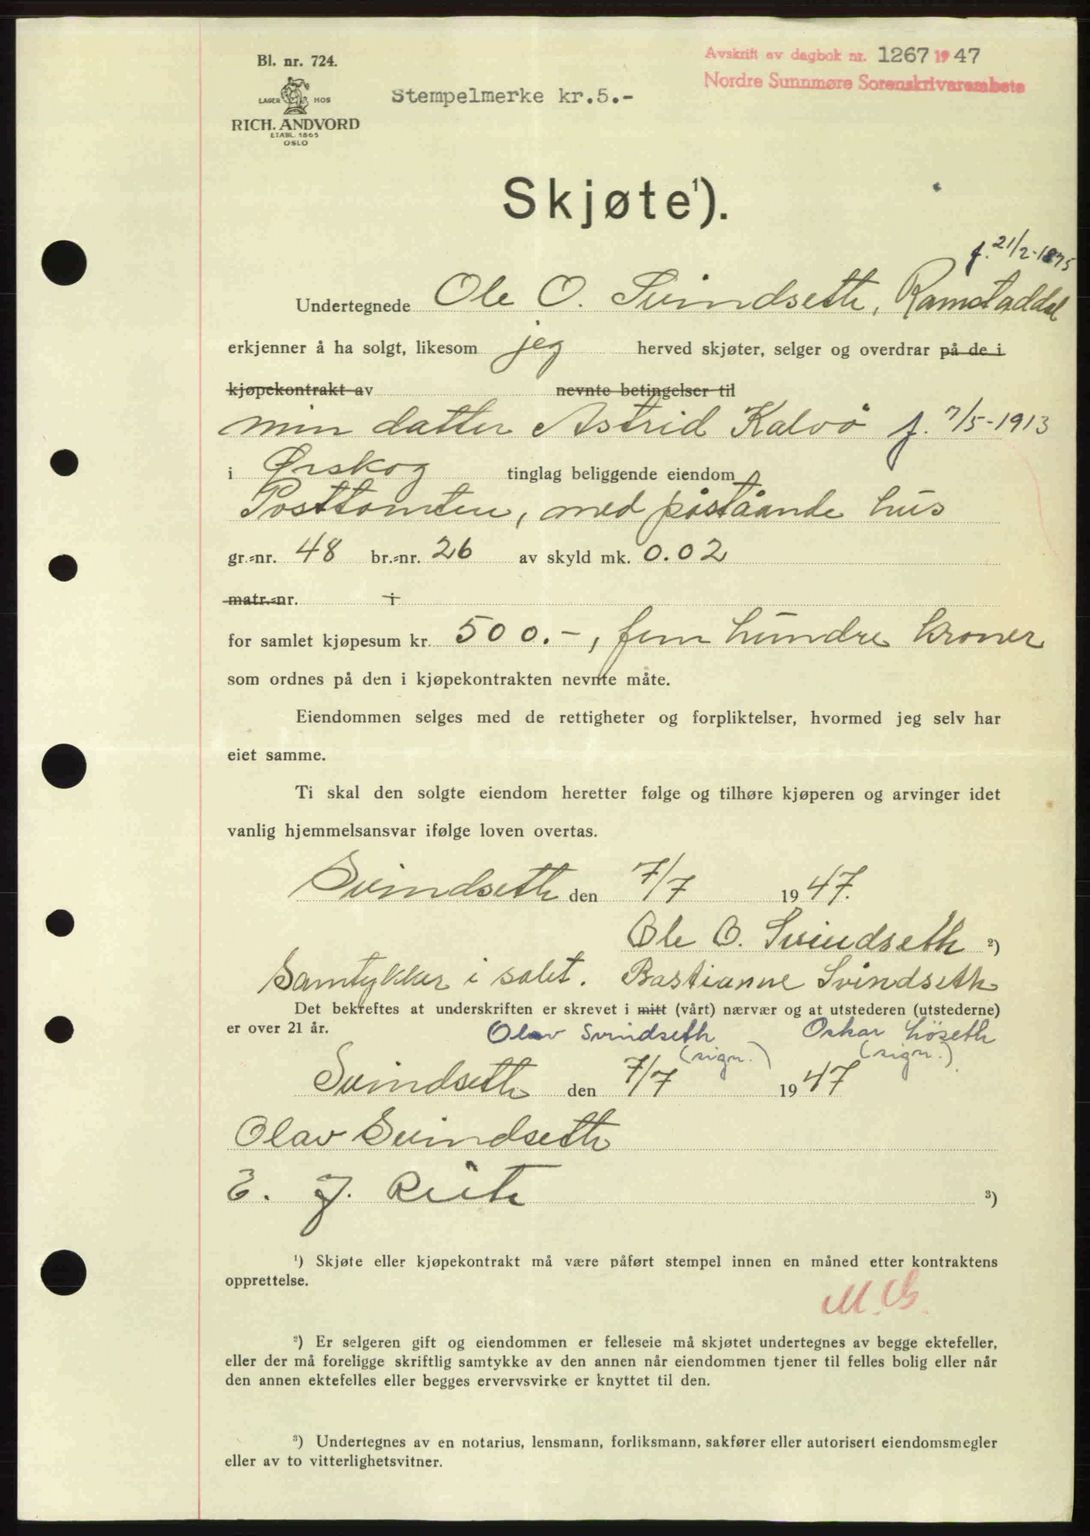 Bl. nr. 724.
LAGER HOS
RICH. ANDVORD
ETABL. 1865
OSLO
Stempelmerke kr.5.-
Avskrift av dagbok nr. 1267 1947
Nordre Sunnmøre Sorenskrivarembete
Skjøte¹).
f. 21/2-1875
Undertegnede Ole O. Svindseth, Ramstaddal
erkjenner å ha solgt, likesom jeg herved skjøter, selger og overdrar på de i
kjøpekontrakt av nevnte betingelser til
min datter Astrid Kalvö f. 7/5-1913
i Ørskog tinglag beliggende eiendom
Posttomten, med påstående hus
gr.-nr. 48 br.-nr. 26 av skyld mk. 0.02
matr.-nr. i
for samlet kjøpesum kr. 500.-, fem hundre kroner
som ordnes på den i kjøpekontrakten nevnte måte.
Eiendommen selges med de rettigheter og forpliktelser, hvormed jeg selv har
eiet samme.
Ti skal den solgte eiendom heretter følge og tilhøre kjøperen og arvinger idet
vanlig hjemmelsansvar ifølge loven overtas.
Svindseth den 7/7 1947.
Ole O. Svindseth ²)
Samtykker i salet. Bastianne Svindseth
Det bekreftes at underskriften er skrevet i mitt (vårt) nærvær og at utstederen (utstederne)
er over 21 år. Olav Svindseth Oskar Löseth
(sign.) (sign.)
Svindseth den 7/7 1947
Olav Svindseth
E. J. ³)
¹) Skjøte eller kjøpekontrakt må være påført stempel innen en måned etter kontraktens
opprettelse.
M.G.
²) Er selgeren gift og eiendommen er felleseie må skjøtet undertegnes av begge ektefeller,
eller der må foreligge skriftlig samtykke av den annen når eiendommen tjener til felles bolig eller når
den annen ektefelles eller begges ervervsvirke er knyttet til den.
³) Undertegnes av en notarius, lensmann, forliksmann, sakfører eller autorisert eiendomsmegler
eller av to vitterlighetsvitner.